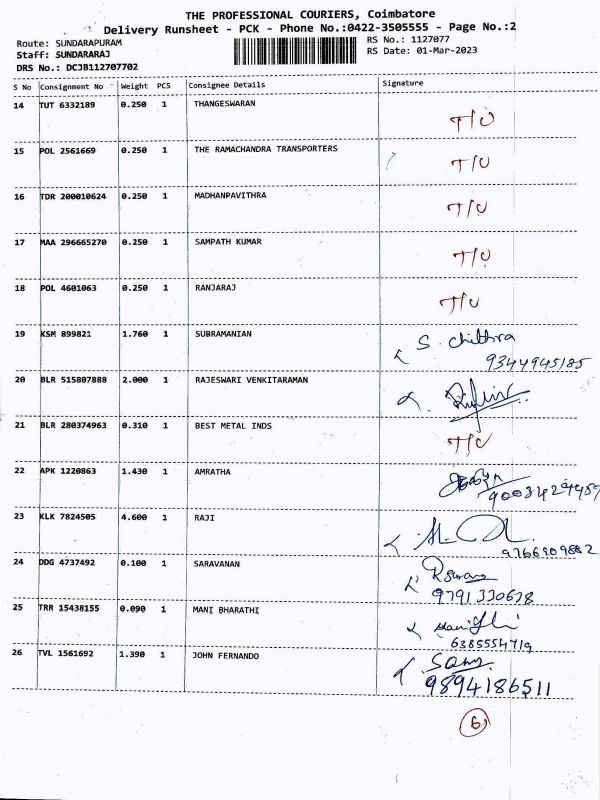 THE PROFESSIONAL COURIERS, Coimbatore
Delivery Runsheet - PCK - Phone No.:0422-3505555 - Page No.:2
Route: SUNDARAPURAM RS No.: 1127077
Staff: SUNDARARAJ RS Date: 01-Mar-2023
DRS No.: DCJB112707702
S No Consignment No Weight PCS Consignee Details Signature
14 TUT 6332189 0.250 1 THANGESWARAN T/U
15 POL 2561669 0.250 1 THE RAMACHANDRA TRANSPORTERS T/U
16 TDR 200010624 0.250 1 MADHANPAVITHRA T/U
17 MAA 296665270 0.250 1 SAMPATH KUMAR T/U
18 POL 4601063 0.250 1 RANJARAJ T/U
19 KSM 899821 1.760 1 SUBRAMANIAN S. Chithra
9344945185
20 BLR 515807888 2.000 1 RAJESWARI VENKITARAMAN
21 BLR 280374963 0.310 1 BEST METAL INDS T/U
22 APK 1220863 1.430 1 AMRATHA
23 KLK 7824505 4.600 1 RAJI
9766909882
24 DDG 4737492 0.100 1 SARAVANAN
9791330678
25 TRR 15438155 0.090 1 MANI BHARATHI
6385554719
26 TVL 1561692 1.390 1 JOHN FERNANDO
9894186511
6